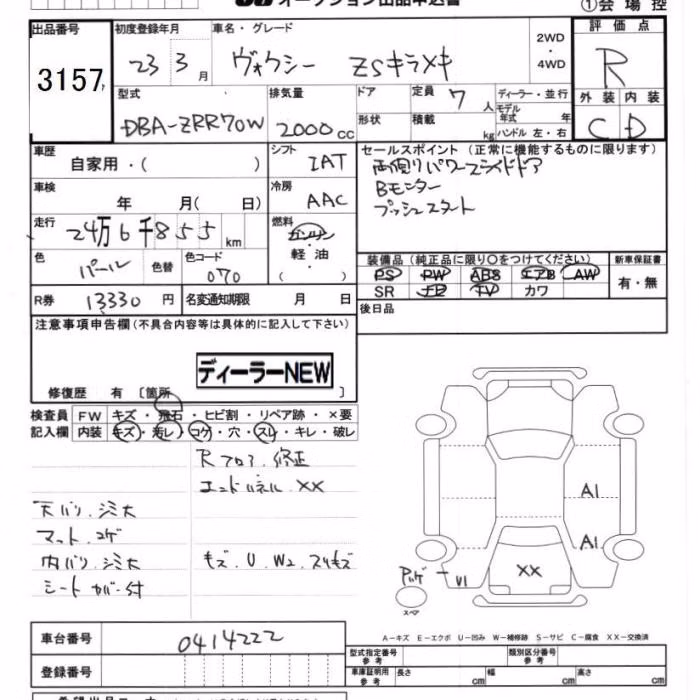 オークション出品申込書
①会場控
出品番号
3157
初度登録年月
23 3月
車名・グレード
ヴォクシー ZSキラメキ
2WD
・
4WD
評価点
R
外装 内装
C D
型式
DBA-ZRR70W
排気量
2000cc
ドア
形状
定員 7人
積載 kg
ディーラー・並行
モデル年式 年
ハンドル 左・右
車歴
自家用・( )
シフト
IAT
セールスポイント (正常に機能するものに限ります)
両側りパワースライドドア
Bモニター
プッシュスタート
車検
年 月( 日)
冷房
AAC
走行
24万6千855km
燃料
ガソリン
軽油
( )
色
パール
色替
色コード
070
装備品 (純正品に限り○をつけてください)
PS PW ABS エアB AW
SR TV カワ
新車保証書
有・無
R券 13330円
名変通知期限 月 日
後日品
注意事項申告欄(不具合内容等は具体的に記入して下さい)
ディーラーNEW
修復歴 有〔箇所 〕
検査員記入欄
FW キズ・飛石・ヒビ割・リペア跡・×要
内装 キズ・汚レ・コゲ・穴・スレ・キレ・破レ
Rフロア.修正
エンドパネル.XX
天バリ.シミ大
マット.コゲ
内バリ.シミ大
シートカバー付
キズ.U.W2.スリキズ
A1
A1
XX
U1
スペア
A-キズ E-エクボ U-凹み W-補修跡 S-サビ C-腐食 XX-交換済
車台番号
0414222
登録番号
型式指定番号 参考
類別区分番号 参考
車庫証明用 参考 長さ cm 幅 cm 高さ cm